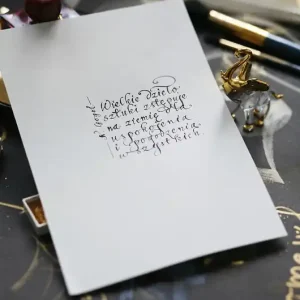 Wielkie dzieło
sztuki zstępuje
na ziemię dla
uspokojenia
i pogodzenia
wszystkich